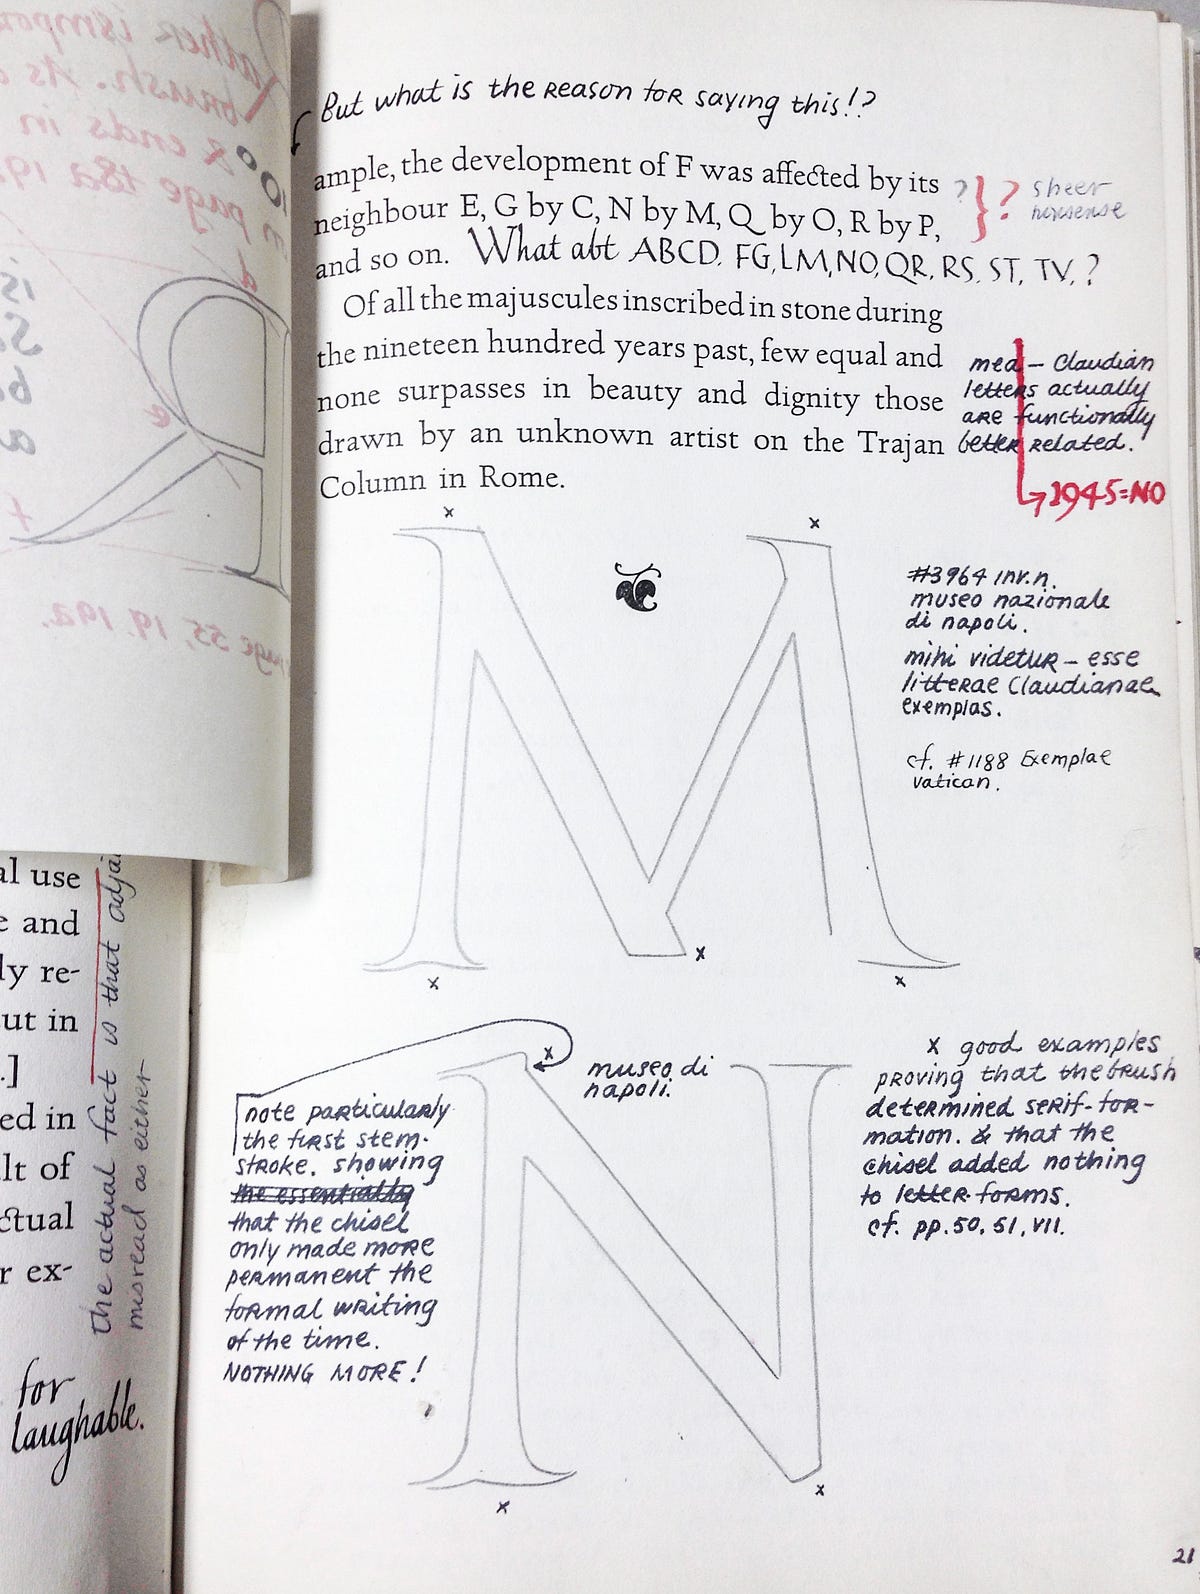 But what is the reason for saying this!?
ample, the development of F was affected by its
neighbour E, G by C, N by M, Q by O, R by P,
and so on. What abt ABCD. FG, LM, NO, QR. RS. ST, TV.?
? } ? sheer
nonsense
Of all the majuscules inscribed in stone during
the nineteen hundred years past, few equal and
none surpasses in beauty and dignity those
drawn by an unknown artist on the Trajan
Column in Rome.
mea – Claudian
letters actually
are functionally
better related.
1945=NO
x
x
#3964 inv.n.
museo nazionale
di napoli.
mihi videtur – esse
litterae Claudianae
exemplas.
cf. #1188 Exemplae
vatican.
x
x
x
x
museo di
napoli.
note particularly
the first stem-
stroke. showing
the essentially
that the chisel
only made more
permanent the
formal writing
of the time.
NOTHING MORE!
x good examples
proving that the brush
determined serif-for-
mation. & that the
chisel added nothing
to letter forms.
cf. pp. 50, 51, VII.
x
x
21
rather
brush. As
& ends in
page 18a 19a
page 55, 19. 19a.
al use
e and
ly re-
ut in
.]
ed in
lt of
ctual
r ex-
the actual fact is that
misread as either
for
laughable.